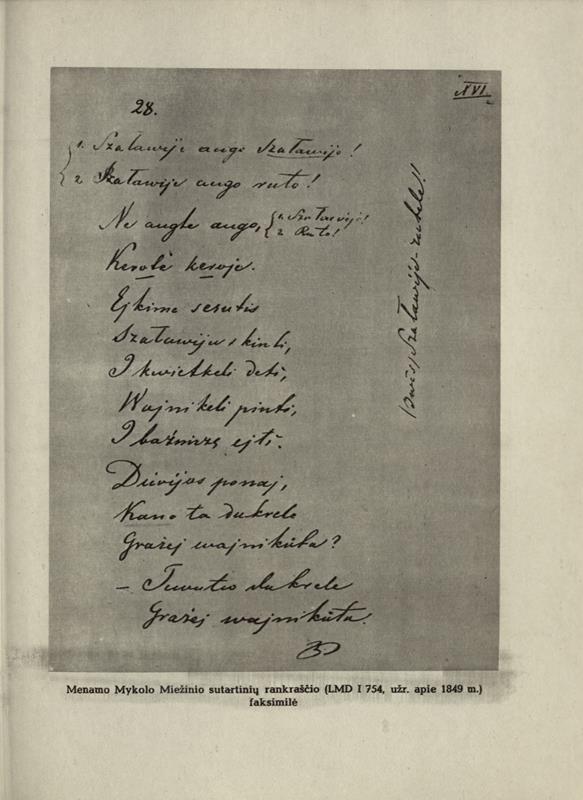 XVI
28.
1. Szaławije augo Szaławijo!
2 Szaławije augo ruto!
Ne augte augo, 1. Szaławijo!
2 Ruto!
Kerotė keroje.
Ejkime sesutis
Szaławijus skinti,
I kwietkeli deti,
Wajnikeli pinti,
I bażniczę ejti.
Diewijos ponaj,
Kano ta dukrele
Grażej wajnikůta?
– Tewutio dukrele
Grażej wajnikůta.
Szaławije-rutele!!
Menamo Mykolo Miežinio sutartinių rankraščio (LMD I 754, užr. apie 1849 m.)
faksimilė